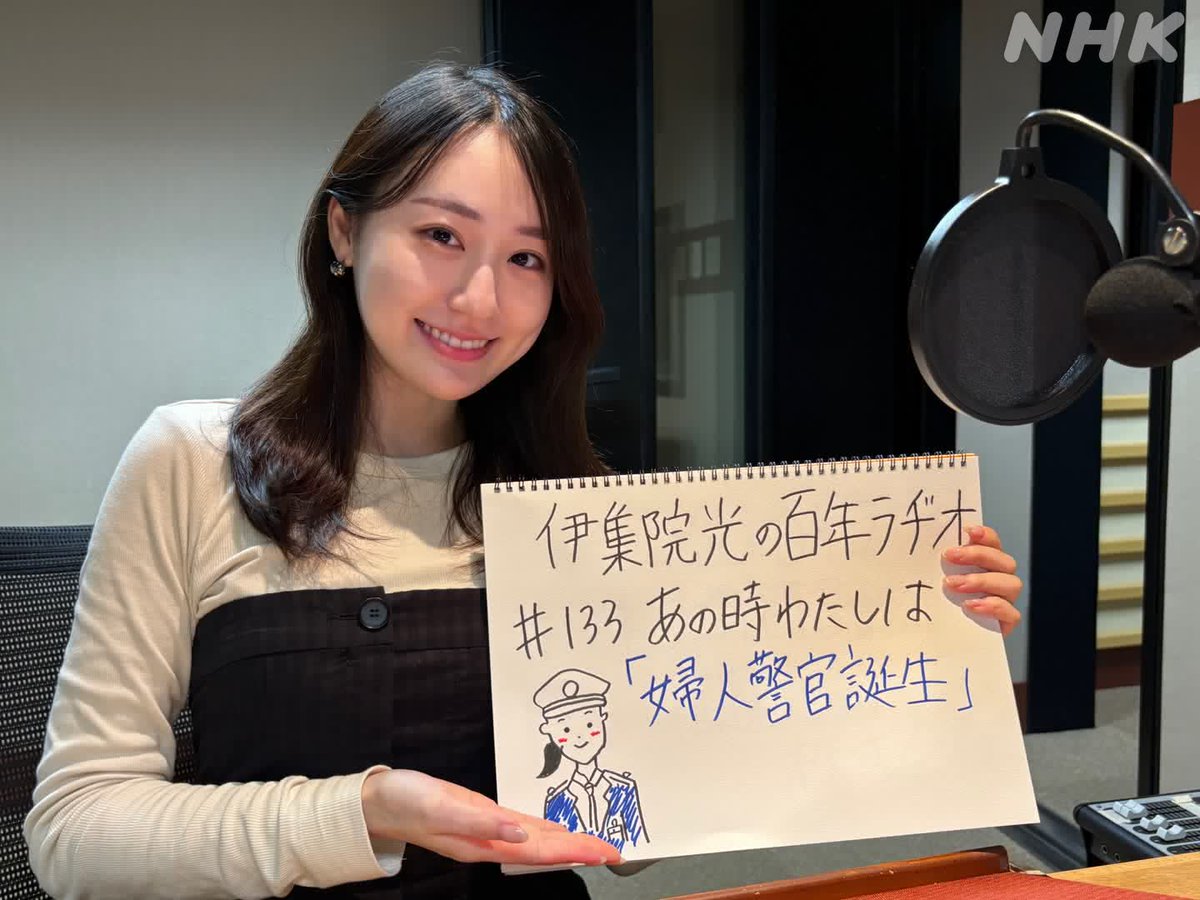 NHK
伊集院光の百年ラヂオ
#133 あの時わたしは
「婦人警官誕生」